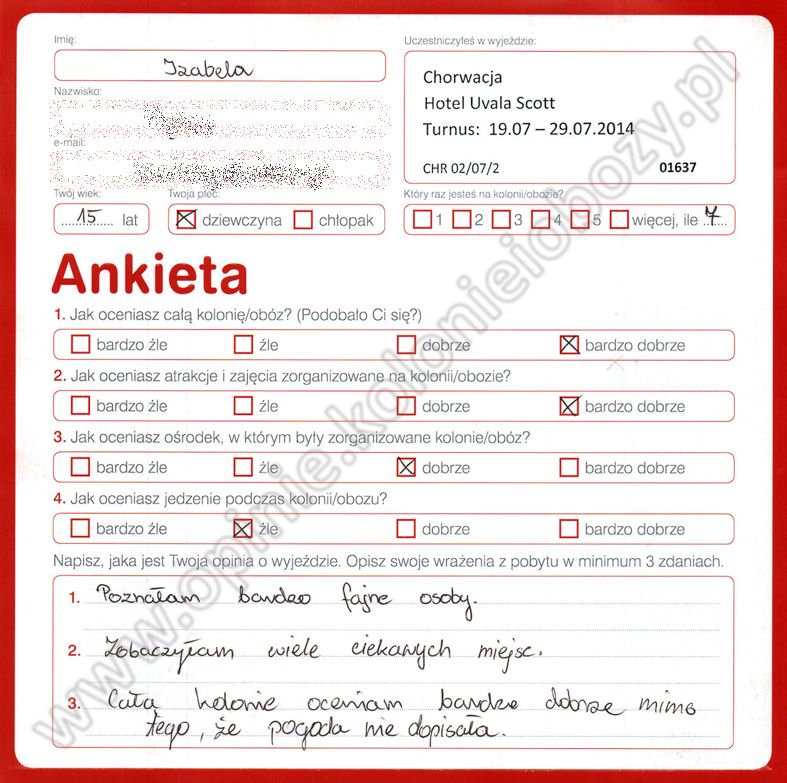 Imię:
Izabela
Uczestniczyłeś w wyjeździe:
Chorwacja
Hotel Uvala Scott
Turnus: 19.07 – 29.07.2014
CHR 02/07/2 01637
Nazwisko:
e-mail:
Twój wiek: Twoja płeć: Który raz jesteś na kolonii/obozie?
15 lat dziewczyna chłopak 1 2 3 4 5 więcej, ile 7
Ankieta
1. Jak oceniasz całą kolonię/obóz? (Podobało Ci się?)
bardzo źle źle dobrze bardzo dobrze
2. Jak oceniasz atrakcje i zajęcia zorganizowane na kolonii/obozie?
bardzo źle źle dobrze bardzo dobrze
3. Jak oceniasz ośrodek, w którym były zorganizowane kolonie/obóz?
bardzo źle źle dobrze bardzo dobrze
4. Jak oceniasz jedzenie podczas kolonii/obozu?
bardzo źle źle dobrze bardzo dobrze
Napisz, jaka jest Twoja opinia o wyjeździe. Opisz swoje wrażenia z pobytu w minimum 3 zdaniach.
1. Poznałam bardzo fajne osoby.
2. Zobaczyłam wiele ciekawych miejsc.
3. Całą kolonie oceniam bardzo dobrze mimo
tego, że pogoda nie dopisała.
www.opinie.kolonieiobozy.pl